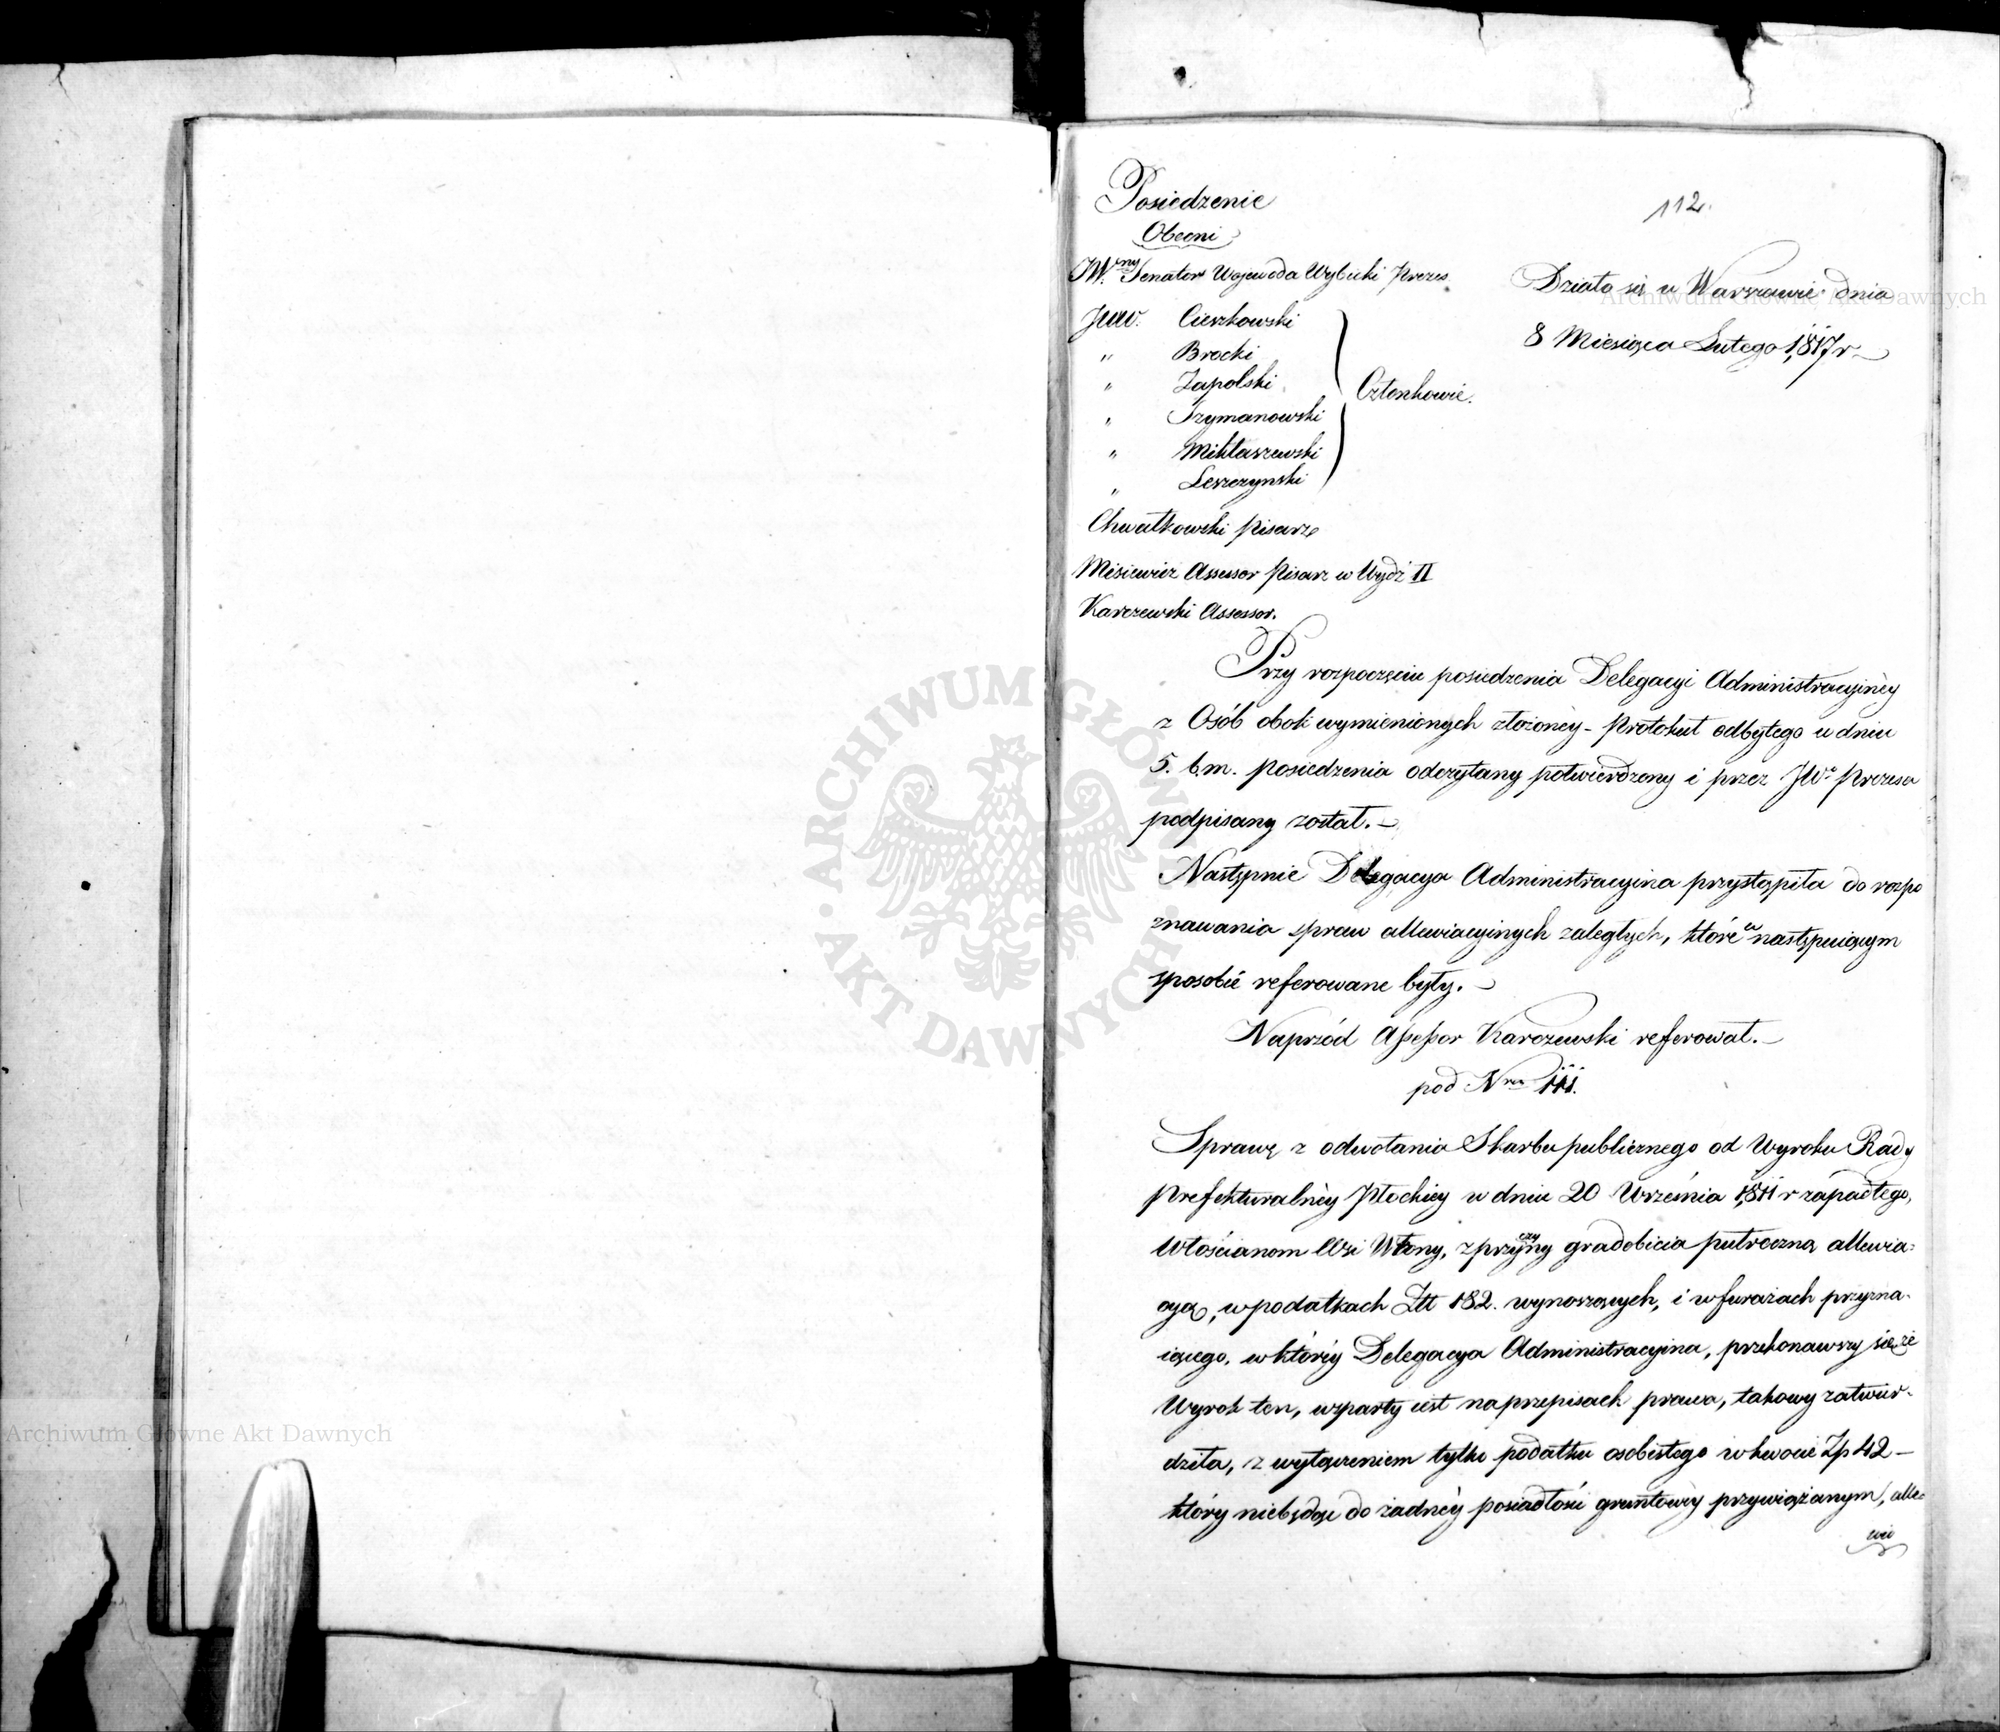 Posiedzenie
112.
Obecni
JW.ny Senator Wojewoda Wybicki Prezes.
Działo się w Warszawie dnia
8 Miesiąca Lutego 1817 r
JWW. Cieszkowski
" Brocki
" Zapolski
" Szymanowski
" Mikłaszewski
" Leszczynski
Członkowie.
Chwałkowski Pisarz
Misiewicz Assessor Pisarz w Wydz II
Karczewski Assessor.
Przy rozpoczęciu posiedzenia Delegacyi Administracyinéy
z Osób obok wymienionych złożonéy - Protokuł odbytego w dniu
5. b.m. posiedzenia odczytany potwierdzony i przez JWo Prezesa
podpisany został. -
Następnie Delegacya Administracyina przystąpiła do rozpo
znawania spraw allewiacyinych zaległych, które w następuiącym
sposobie referowane były. -
Naprzód Assessor Karczewski referował. -
pod Nrem 111.
Sprawę z odwołania Skarbu publicznego od Wyroku Rady
Prefekturalnéy Płockiey w dniu 20 Września 1811 r zapadłego,
Włościanom Wsi Wtany, z przyczyny gradobicia pułroczną allewia=
cyą, w podatkach Złt 182. wynoszących, i w furażach przyzna-
iącego, w któréy Delegacya Administracyina, przekonawszy się że
Wyrok ten, wsparty iest na przepisach prawa, takowy zatwier-
dziła, z wyłączeniem tylko podatku osobistego w kwocie Zp 42 -
który niebędąc do żadnéy posiadłości gruntowéy przywiązanym, alle=
wia
Archiwum Główne Akt Dawnych
ARCHIWUM GŁÓWNE · AKT DAWNYCH ·
Archiwum Główne Akt Dawnych